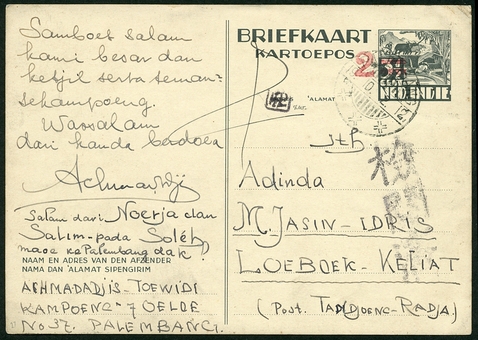 Samboet salam
kami besar dan
ketjil serta teman²
sekampoeng.
Wassalam
dari kanda berdoea
Achmadadjis
Salam dari Noerja dan
Salim - pada Soleh,
maoe ke Palembang dak?
NAAM EN ADRES VAN DEN AFZENDER
NAMA DAN 'ALAMAT SIPENGIRIM
ACHMADADJIS - TOEWIDI
KAMPOENG - 7 OELOE
No 37. PALEMBANG.
BRIEFKAART
KARTOEPOS
2½
NED. INDIE
'ALAMAT
jth
Adinda
M. JASIN - IDRIS
LOEBOEK - KELIAT
(Post. TANDJOENG - RADJA.)